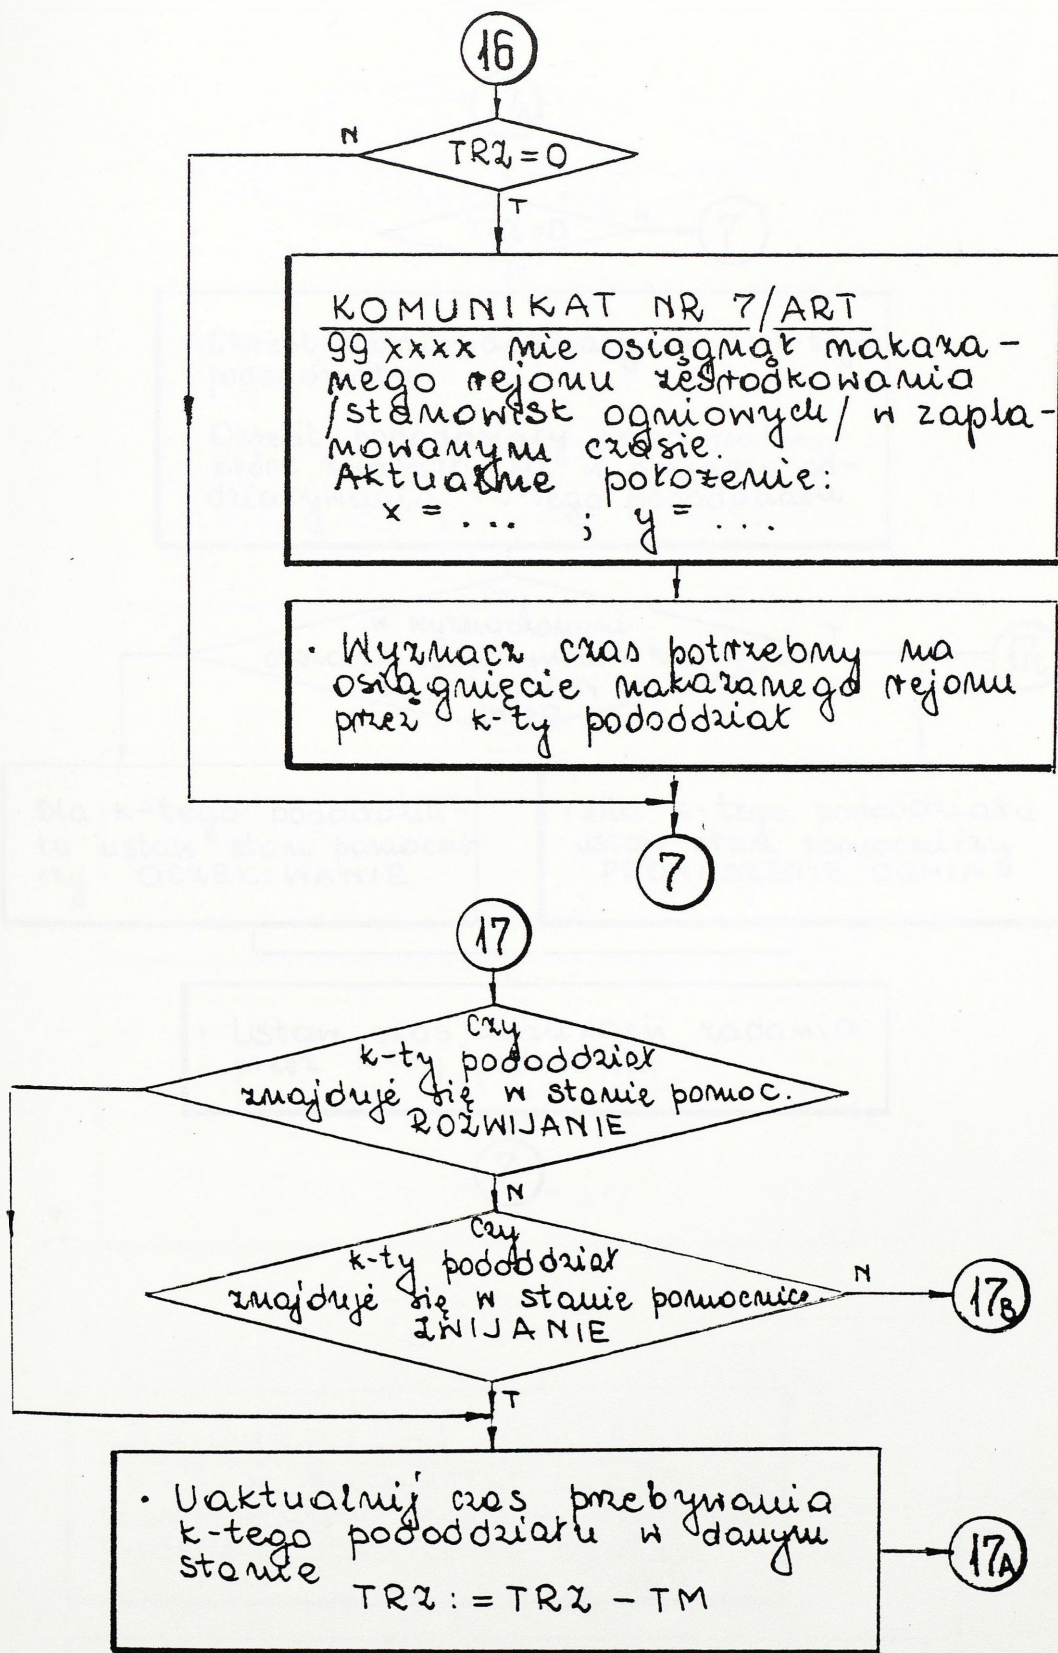 16
N
TRZ = 0
T
KOMUNIKAT NR 7/ART
99 xxxx nie osiągnął nakaza-
nego rejonu ześrodkowania
/stanowisk ogniowych/ w zapla-
nowanym czasie.
Aktualne położenie:
x = ... ; y = ...
· Wyznacz czas potrzebny na
osiągnięcie nakazanego rejonu
przez k-ty pododdział
7
17
Czy
k-ty pododdział
znajduje się w stanie pomoc.
ROZWIJANIE
N
Czy
k-ty pododdział
znajduje się w stanie pomocnicz.
ZWIJANIE
N
17B
T
· Uaktualnij czas przebywania
k-tego pododdziału w danym
stanie
TRZ := TRZ - TM
17A